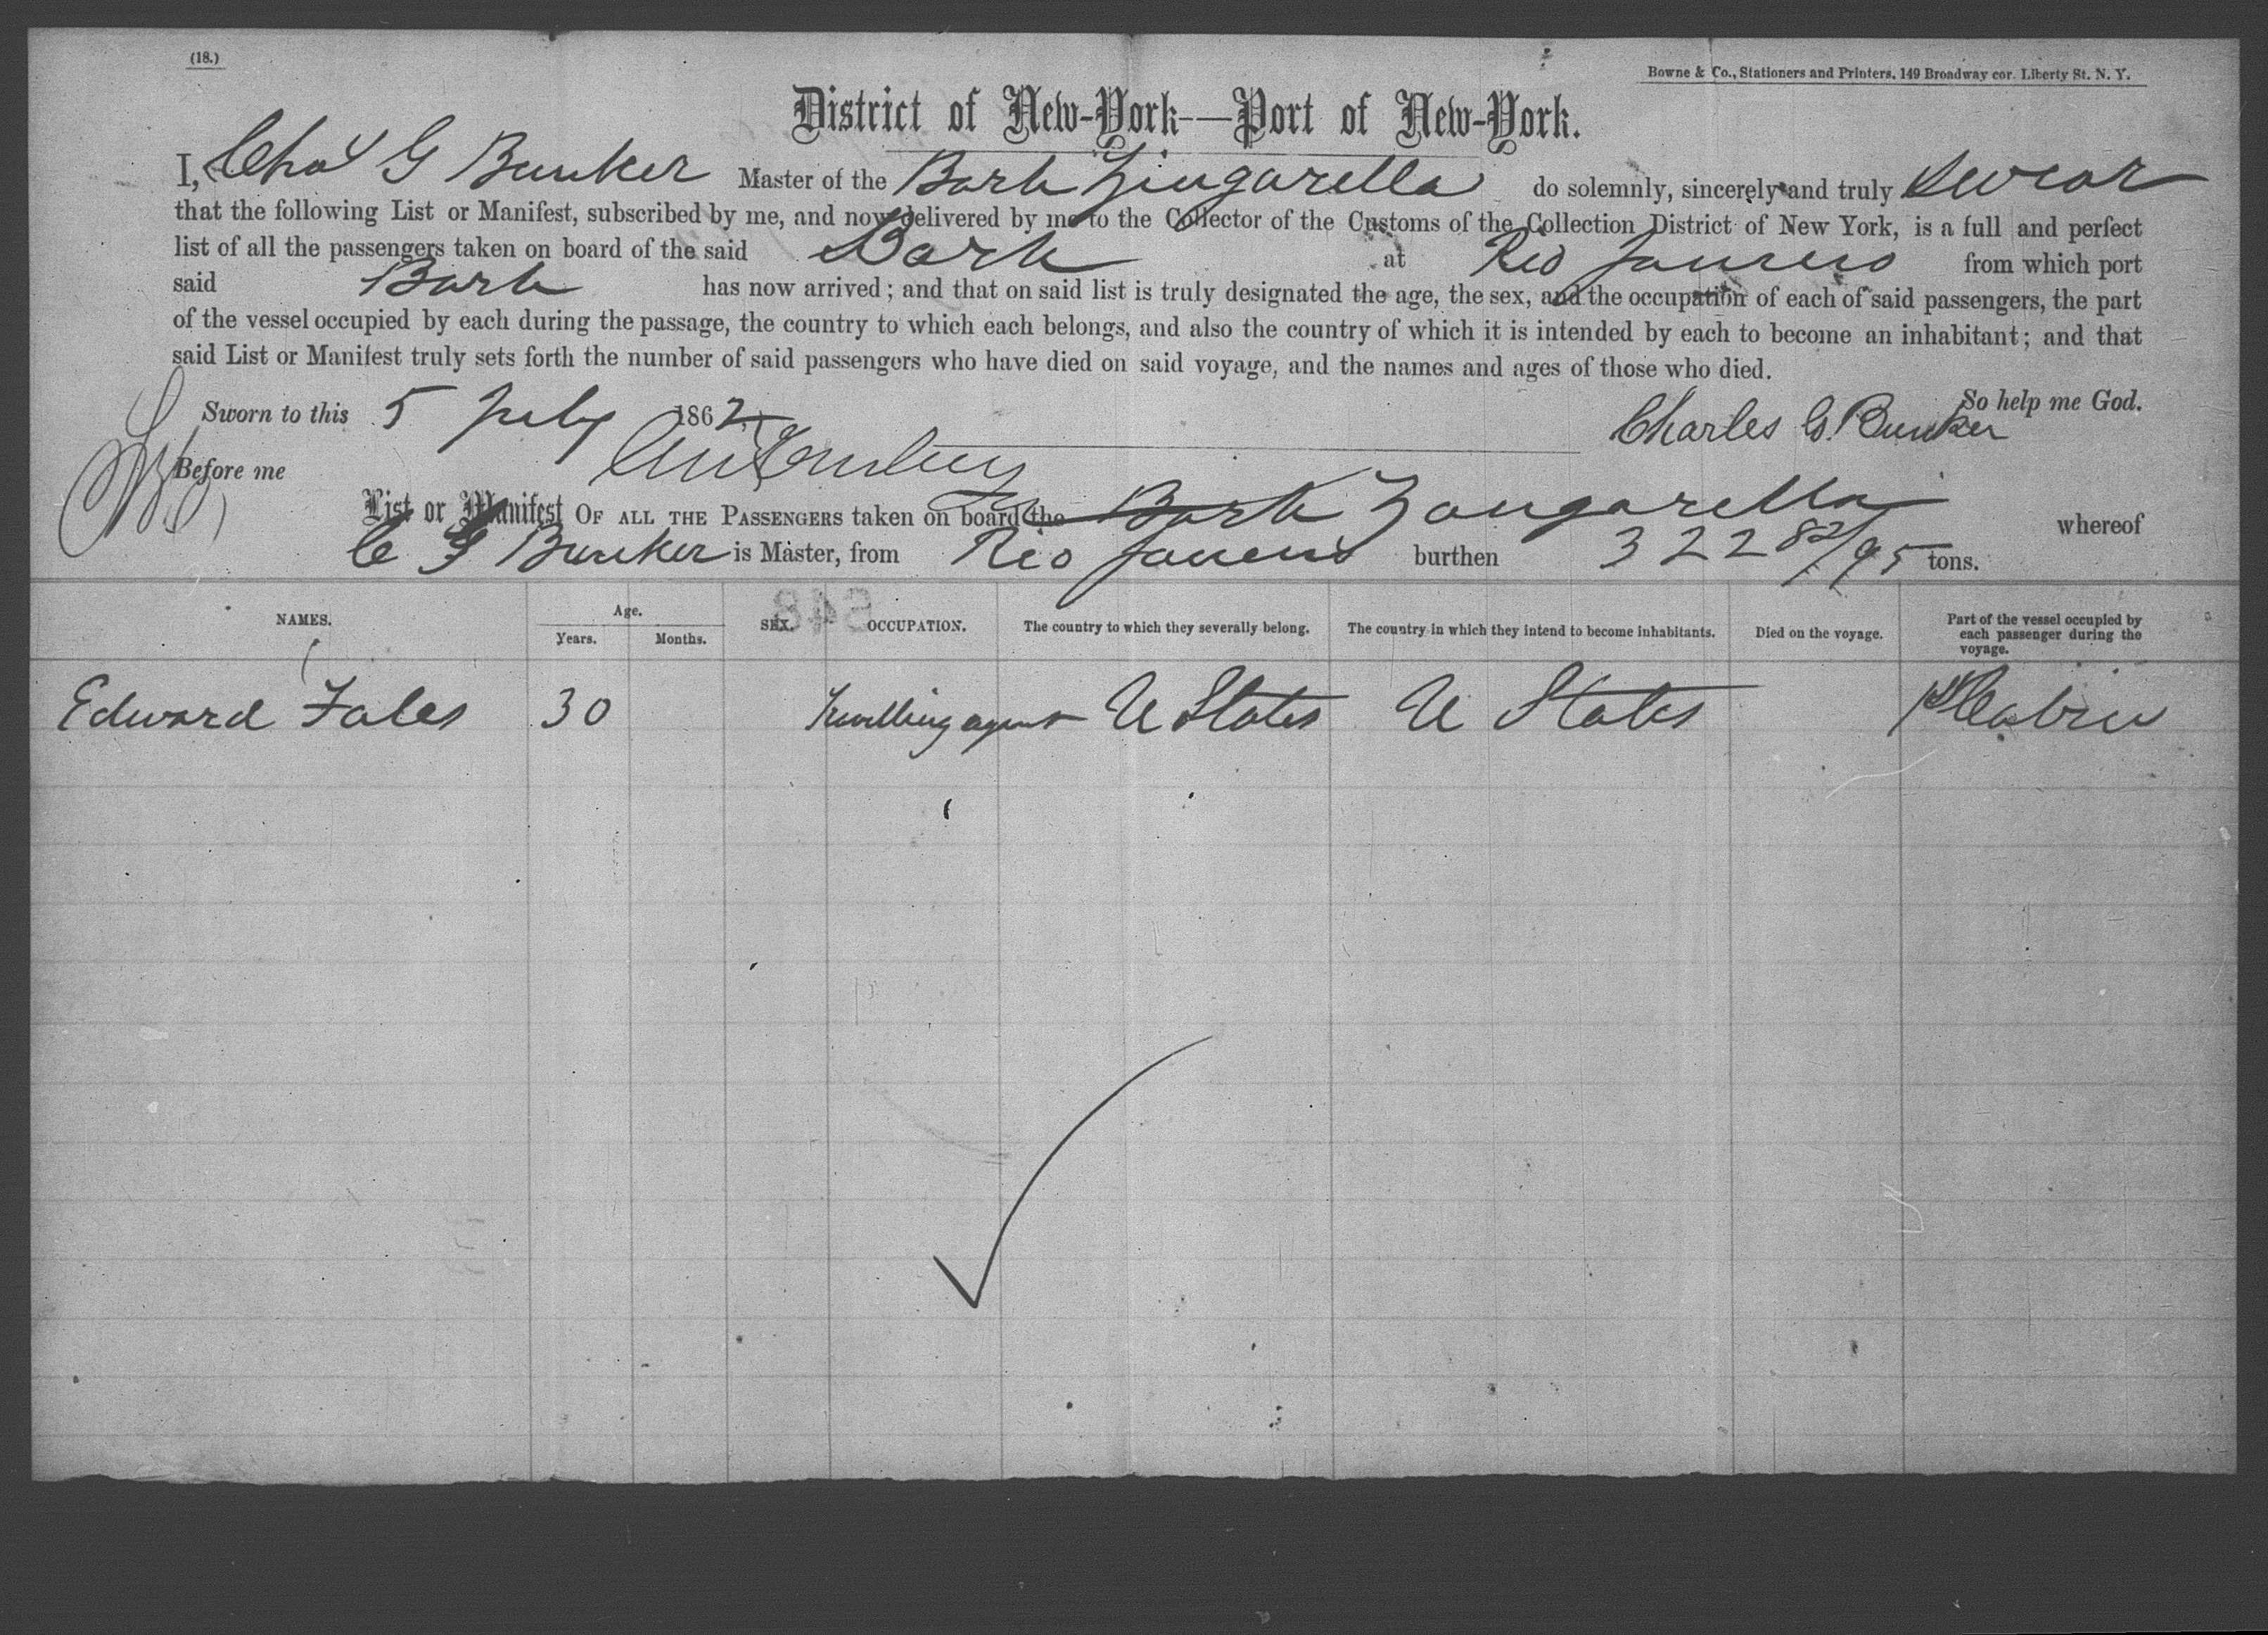 (18.)
Bowne & Co., Stationers and Printers, 149 Broadway cor. Liberty St. N. Y.
District of New-York—Port of New-York.
I, Chas G Bunker Master of the Bark Zingarella do solemnly, sincerely and truly swear
that the following List or Manifest, subscribed by me, and now delivered by me to the Collector of the Customs of the Collection District of New York, is a full and perfect
list of all the passengers taken on board of the said Bark at Rio Janeiro from which port
said Bark has now arrived; and that on said list is truly designated the age, the sex, and the occupation of each of said passengers, the part
of the vessel occupied by each during the passage, the country to which each belongs, and also the country of which it is intended by each to become an inhabitant; and that
said List or Manifest truly sets forth the number of said passengers who have died on said voyage, and the names and ages of those who died.
So help me God.
Sworn to this 5 July 1862 Charles G. Bunker
Before me
List or Manifest OF ALL THE PASSENGERS taken on board the Bark Zangarella whereof
C G Bunker is Master, from Rio Janeiro burthen 322 82/95 tons.
NAMES. Age. Years. Months. SEX. OCCUPATION. The country to which they severally belong. The country in which they intend to become inhabitants. Died on the voyage. Part of the vessel occupied by each passenger during the voyage.
548
Edward Fales 30 Travelling agent U States U States 1st Cabin